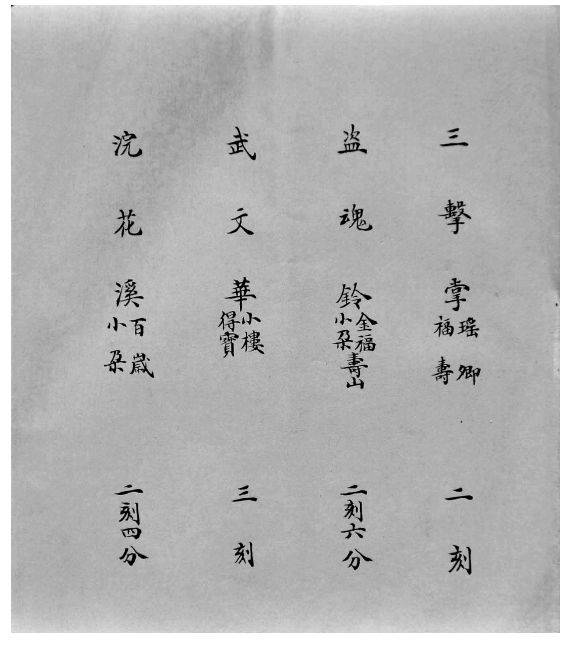 三擊掌
瑤卿
福壽
二刻
盗魂鈴
金福
小朵
壽山
二刻六分
武文華
小樓
得寶
三刻
浣花溪
百歲
小朵
二刻四分